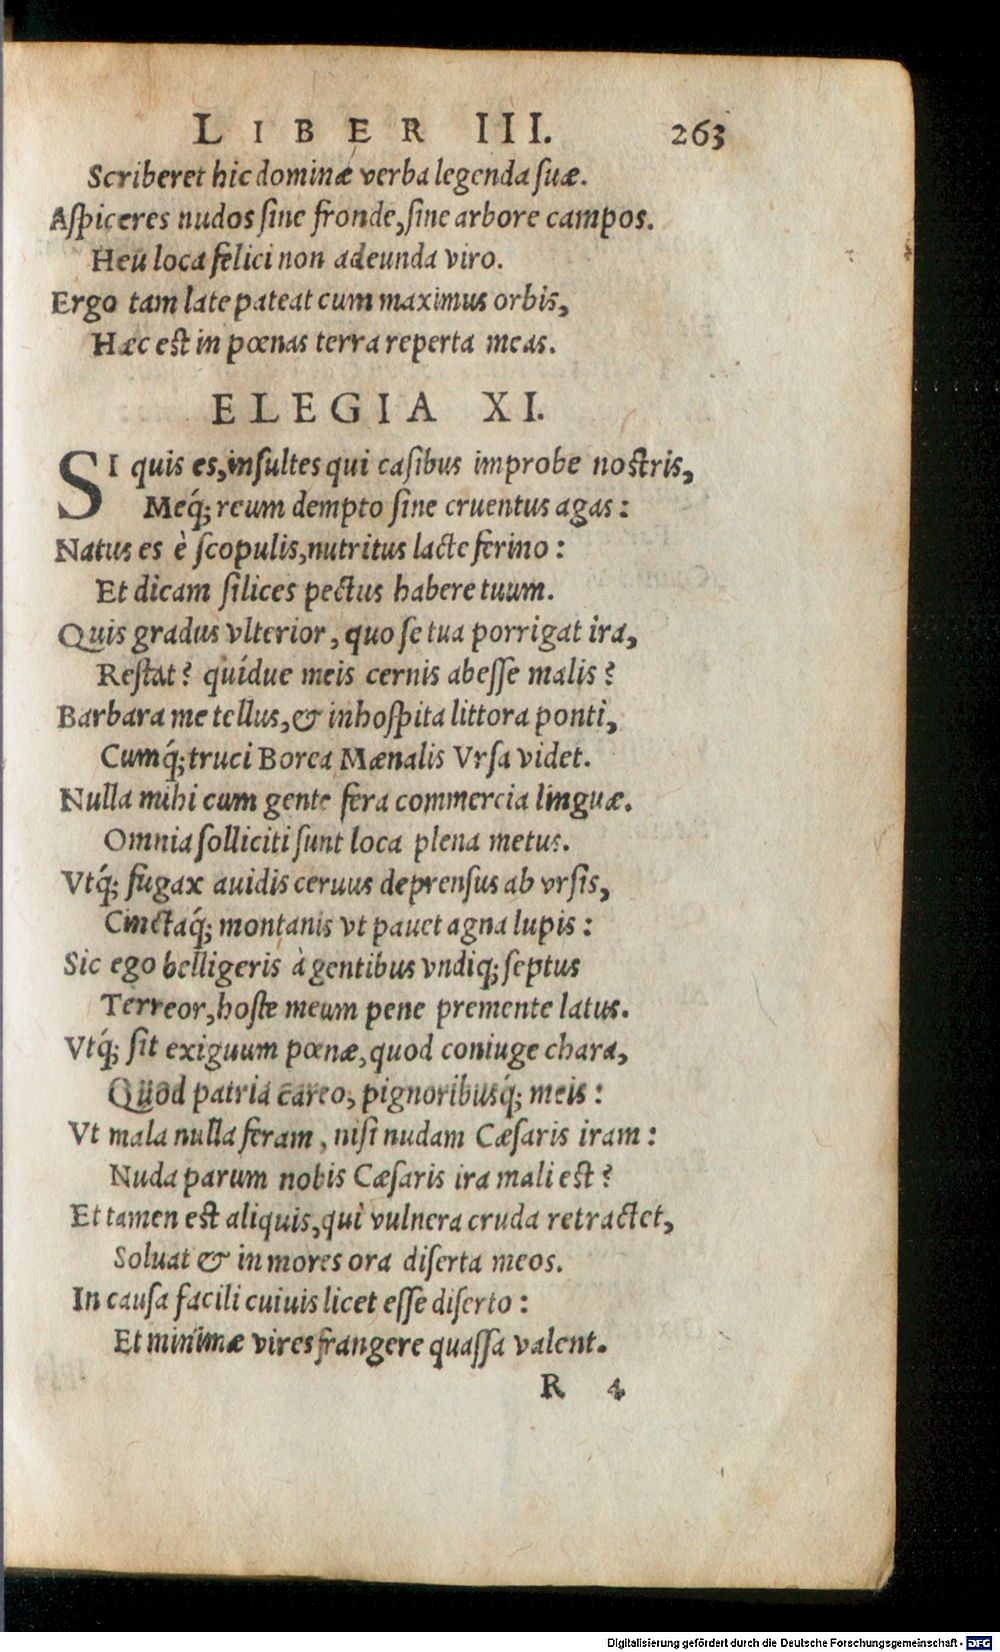 LIBER III. 263
Scriberet hic dominæ verba legenda ſuæ.
Aſpiceres nudos ſine fronde, ſine arbore campos.
Heu loca felici non adeunda viro.
Ergo tam late pateat cum maximus orbis,
Hæc est in pœnas terra reperta meas.
ELEGIA XI.
SI quis es, inſultes qui caſibus improbe nostris,
Meq́; reum dempto ſine cruentus agas:
Natus es è ſcopulis, nutritus lacte ferino:
Et dicam ſilices pectus habere tuum.
Quis gradus vlterior, quo ſe tua porrigat ira,
Restat? quídue meis cernis abeſſe malis?
Barbara me tellus, & inhoſpita littora ponti,
Cumq́; truci Borea Mænalis Vrſa videt.
Nulla mihi cum gente fera commercia linguæ.
Omnia ſolliciti ſunt loca plena metus.
Vtq́; fugax auidis ceruus deprenſus ab vrſis,
Cinctaq́; montanis vt pauet agna lupis:
Sic ego belligeris à gentibus vndiq; ſeptus
Terreor, hoſte meum pene premente latus.
Vtq́; ſit exiguum pœnæ, quod coniuge chara,
Quod patria careo, pignoribusq́; meis:
Vt mala nulla feram, niſi nudam Cæſaris iram:
Nuda parum nobis Cæſaris ira mali est?
Et tamen est aliquis, qui vulnera cruda retractet,
Soluat & in mores ora diſerta meos.
In cauſa facili cuiuis licet eſſe diſerto:
Et minimæ vires frangere quaſſa valent.
R 4
Digitalisierung gefördert durch die Deutsche Forschungsgemeinschaft - DFG